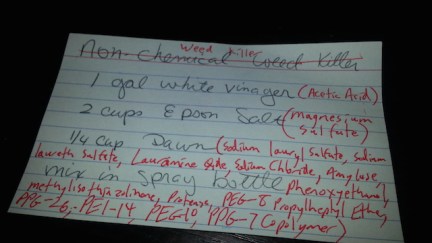 Weed Killer
Non-Chemical Weed Killer
1 gal white vinegar (Acetic Acid)
2 cups Epsom Salt (magnesium
sulfate)
1/4 cup Dawn (sodium lauryl sulfate, sodium
laureth sulfate, Lauramine Oxide, Sodium Chloride, Amylase,
mix in spray bottle phenoxyethanol,
methylisothiazolinone, Protease, PEG-8 Propylheptyl Ether,
PPG-26, PEI-14, PEG-10, PPG-7 Copolymer)